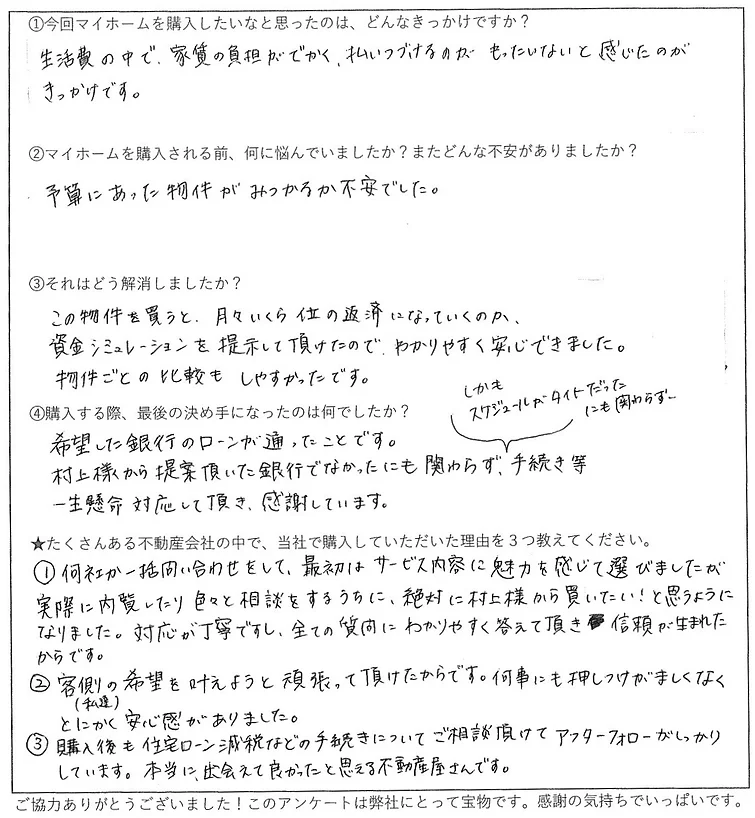 ①今回マイホームを購入したいなと思ったのは、どんなきっかけですか？
生活費の中で、家賃の負担がでかく、払いつづけるのが もったいないと感じたのが
きっかけです。
②マイホームを購入される前、何に悩んでいましたか？またどんな不安がありましたか？
予算にあった物件がみつかるか不安でした。
③それはどう解消しましたか？
この物件を買うと、月々いくら位の返済になっていくのか、
資金シミュレーションを提示して頂けたので、わかりやすく安心できました。
物件ごとの比較もしやすかったです。
④購入する際、最後の決め手になったのは何でしたか？
しかも
スケジュールがタイトだった
にも関わらず
希望した銀行のローンが通ったことです。
村上様から提案頂いた銀行でなかったにも関わらず、手続き等
一生懸命対応して頂き、感謝しています。
★たくさんある不動産会社の中で、当社で購入していただいた理由を３つ教えてください。
① 何社か一括問い合わせをして、最初はサービス内容に魅力を感じて選びましたが
実際に内覧したり色々と相談をするうちに、絶対に村上様から買いたい！と思うように
なりました。対応が丁寧ですし、全ての質問にわかりやすく答えて頂き 信頼が生まれた
からです。
② 客側の希望を叶えようと頑張って頂けたからです。何事にも押しつけがましくなく
（私達）
とにかく安心感がありました。
③ 購入後も住宅ローン減税などの手続きについてご相談頂けてアフターフォローがしっかり
しています。本当に、出会えて良かったと思える不動産屋さんです。
ご協力ありがとうございました！このアンケートは弊社にとって宝物です。感謝の気持ちでいっぱいです。